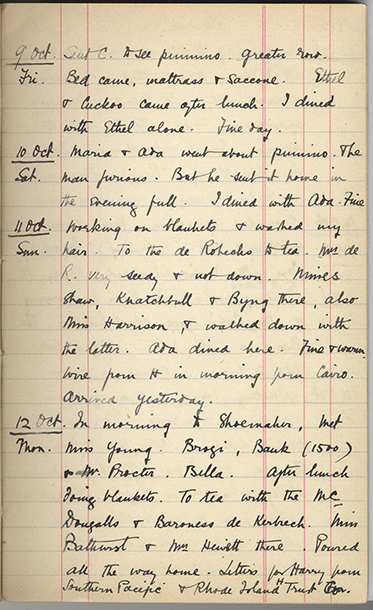 9 Oct. Sent C. to see piumino. Greater row.
Fri. Bed came, mattrass & saccone. Ethel
& Cuckoo came after lunch. I dined
with Ethel alone. Fine day.
10 Oct. Maria & Ada went about piumino. The
Sat. man furious. But he sent it home in
the evening full. I dined with Ada. Fine
11 Oct. Working on blankets & washed my
Sun. hair. To the de Rohecks to tea. Mrs de
R. very seedy & not down. Misses
Shaw, Knatchbull & Byng there, also
Miss Harrison, & walked down with
the latter. Ada dined here. Fine & warm
Wire from H in morning from Cairo.
Arrived yesterday.
12 Oct. In morning to Shoemaker, met
Mon. Miss Young. Brogi, Bank (1500)
& Mr. Procter. Bella. After lunch
doing blankets. To tea with the Mc
Dougalls & Baroness de Kerbech. Miss
Bathurst & Mrs Hewett there. Poured
all the way home. Letters for Harry from
Southern Pacific & Rhode Island H Trust Co.